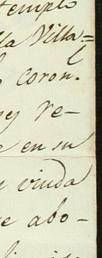 templo
lla Villa=
l
o coron.
rey re-
e en su
e viuda
ue abo-